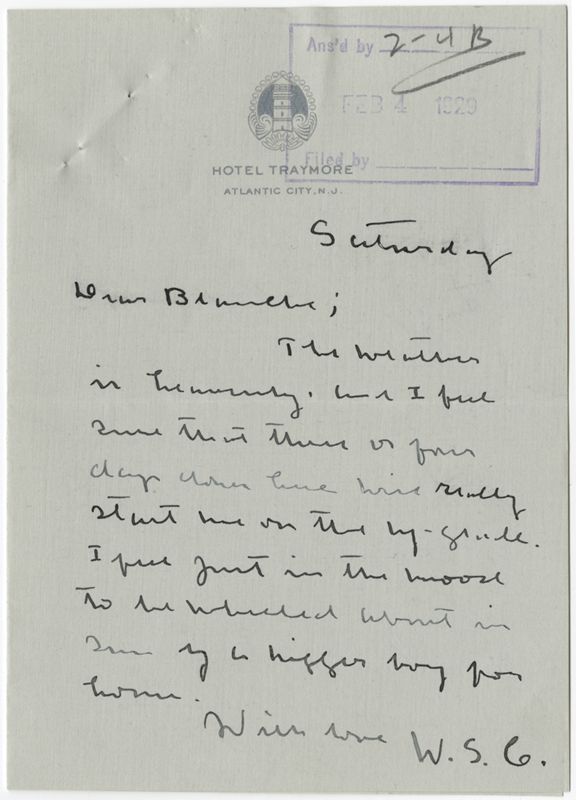 Ans'd by 2-4 B
FEB 4 1929
Filed by
HOTEL TRAYMORE
ATLANTIC CITY, N.J.
Saturday
Dear Blanche;
The weather
is heavenly, and I feel
sure that three or four
days down here will really
start me on the up-grade.
I feel just in the mood
to be wheeled about in
sun by a nigger boy for
hours.
With love W. S. C.